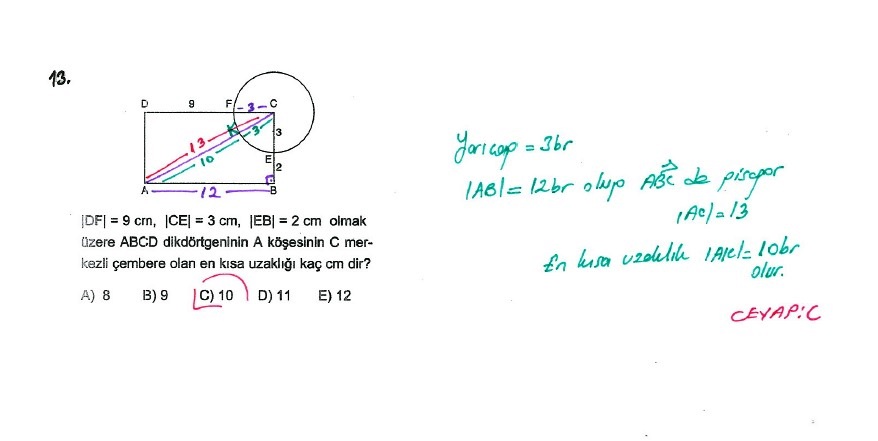 13.
D 9 F -3- C
13
10
K
3
3
E
2
A 12 B
|DF| = 9 cm, |CE| = 3 cm, |EB| = 2 cm olmak
üzere ABCD dikdörtgeninin A köşesinin C mer-
kezli çembere olan en kısa uzaklığı kaç cm dir?
A) 8 B) 9 C) 10 D) 11 E) 12
Yarıçap = 3br
|AB| = 12br olup ABC de pisagor
|AC| = 13
En kısa uzaklık |AK| = 10br
olur.
CEVAP: C